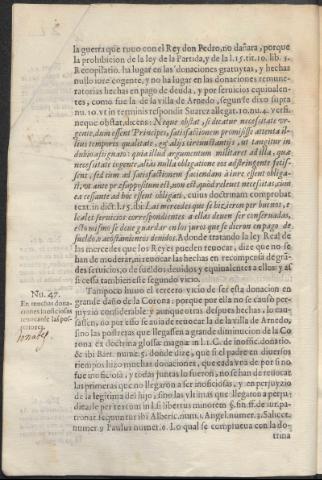 la guerra que tuuo con el Rey don Pedro, no dañara, porque
la prohibicion de la ley de la Partida, y de la l.15. tit. 10. lib. 5.
Recopilatio. ha lugar en las donaciones gratuytas, y hechas
nullo iure cogente, y no ha lugar en las donaciones remune-
ratorias hechas en pago de deuda, y por seruicios equiualen-
tes, como fue la de la villa de Arnedo, segun se dixo supra
nu. 10. vt in terminis respondit Suarez allegat. 10. nu. 4. versi.
neque obstat, dicens: Neque obstat, si dicatur necessitate vr-
gente, dum essent Principes, satisfactionem promisisse attenta il-
lius temporis qualitate, ex alijs circunstantijs, vt tangitur in
dubio assignato: quia illud argumentum militaret ad illa, quæ
necessitate cogente, alias nulla obligatione eos adstringente fecis-
sent, sed cum ad satisfactionem faciendam à iure essent obliga-
ti, vt ante præsuppositum est, non est, quòd releuet necessitas, cum
ea cessante ad hoc essent obligati, cuius doctrinam comprobat
text. in dict. l. 15. ibi: Las mercedes que se hizieren por buenos, e
leales seruicios correspondientes a ellas deuen ser conseruadas,
esto mismo se deue guardar en los juros que se dieron en pago de
sueldo, o acostamientos deuidos. Adonde tratando la ley Real de
las mercedes que los Reyes pueden reuocar, dize que no se
han de moderar, ni reuocar las hechas en recompensa de gran-
des seruicios, o de sueldos deuidos y equiualentes a ellos: y assi
cessa tambien este segundo vicio.
Nu. 47.
En muchas dona-
ciones inoficiosas
reuocanse las pos-
treras.
Tampoco huuo el tercero vicio de ser esta donacion en
grande daño de la Corona: porque por ella no se causò per-
juyzio considerable: y aunque otras despues hechas, lo cau-
sassen, no por esso se auia de reuocar la de la villa de Arnedo,
sino las postreras que llegassen a grande diminucion de la Co
rona ex doctrina glossæ magnæ in l. 1. C. de inoffic. donatio.
& ibi Bart. nume. 5. donde dize, que si el padre en diuersos
tiempos hizo muchas donaciones, que cada vna de por si no
fue inoficiosa, y todas juntas lo fueron, no se han de reuocar
las primeras que no llegaron a ser inoficiosas, y en perjuyzio
de la legitima del hijo, sino las vltimas que llegaron a perju-
dicarle per textum in l. si libertus minorem §. fin. ff. de iur. pa-
tronat. sequuntur ibi Alberic. num. 1. Angel. numer. 3. Salicet.
numer. 7. Paulus numer. 6. Lo qual se comprueua con la do-
trina